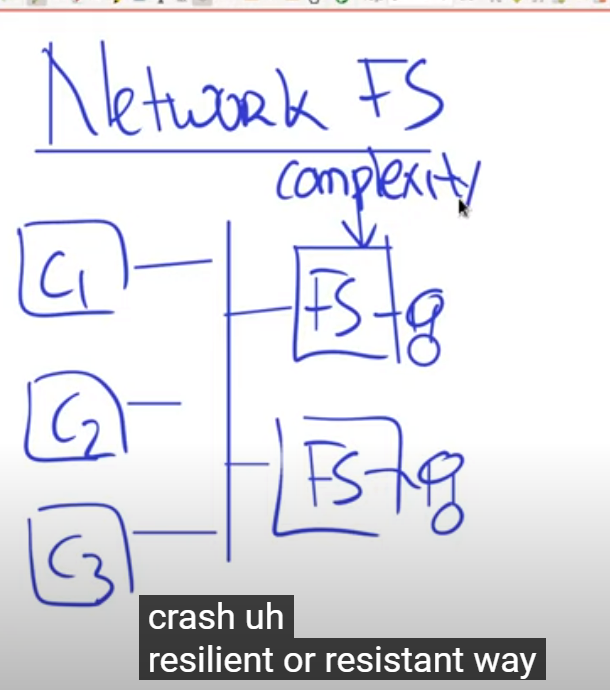 Network FS
complexity
C1
FS
C2
FS
C3
crash uh
resilient or resistant way